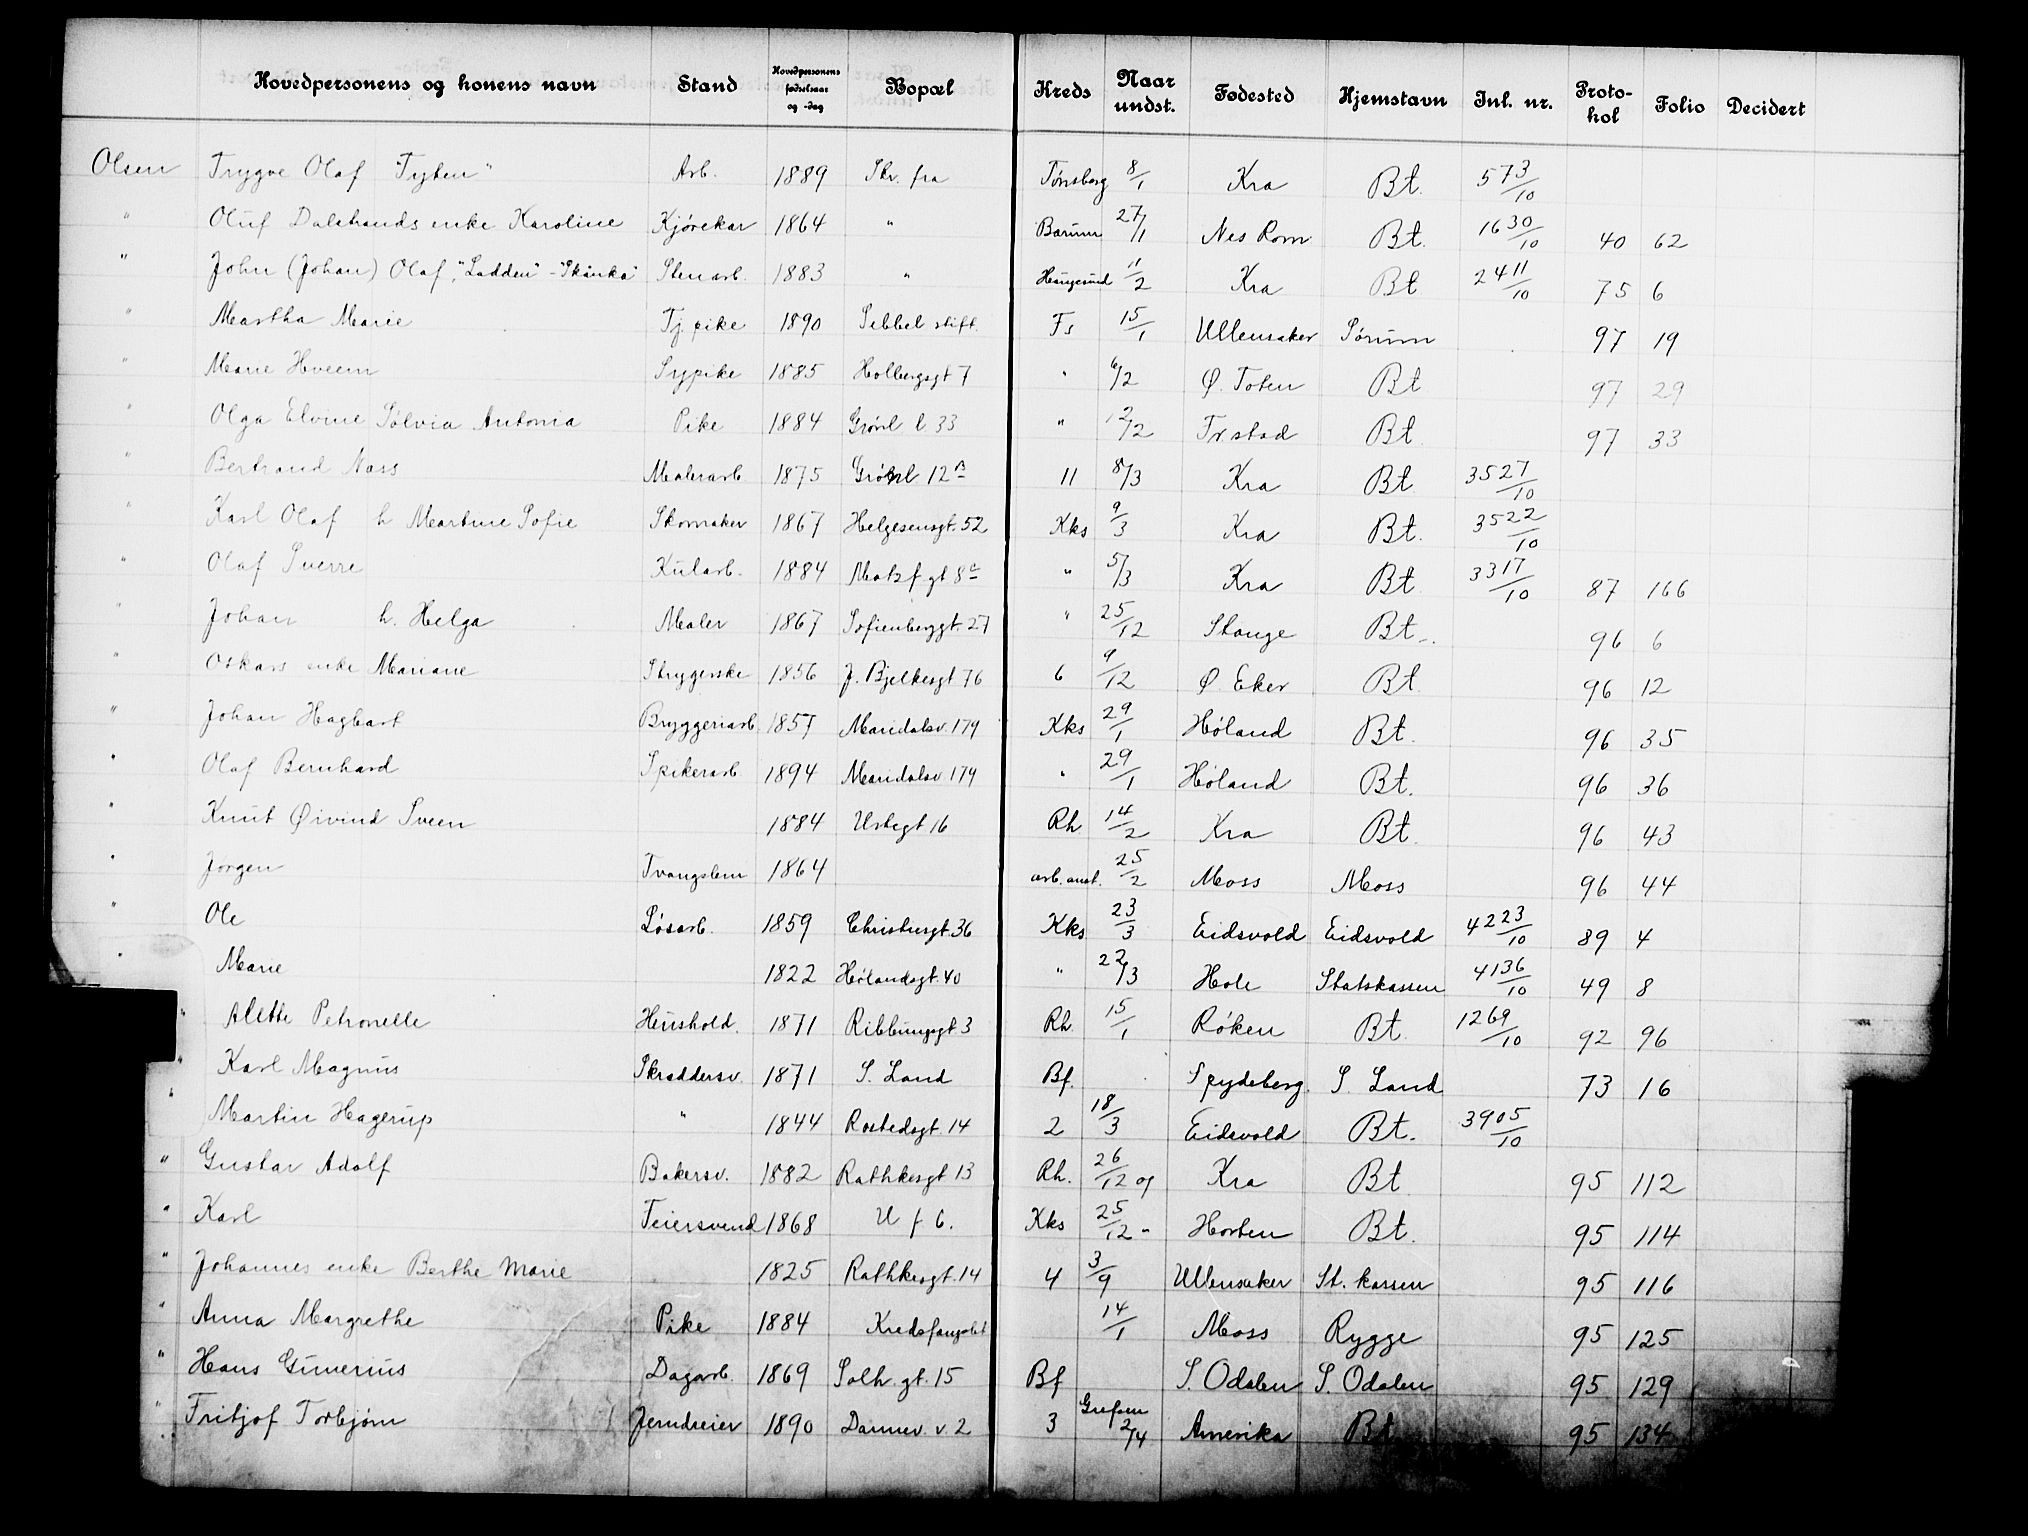 Hovedpersonens og konens navn | Stand | Hovedpersonens fødselsaar og -dag | Bopæl | Kreds | Naar undst. | Fødested | Hjemstavn | Jnl. nr. | Protokol | Folio | Decidert
Olsen | Trygve Olaf "Tyten" | Arb. | 1889 | Skr. fra | Tønsberg | 8/1 | Kra | Bt. | 573/10
" | Oluf Dalstrands enke Karoline | Kjørekar | 1864 | " | Bærum | 27/1 | Nes Rom | Bt. | 1630/10 | 40 | 62
" | John (Johan) Olaf, "Ladden" - "Skinka" | Stenarb. | 1883 | " | Haugesund | 11/2 | Kra | Bt | 2411/10 | 75 | 6
" | Martha Marie | Tj. pike | 1890 | Sibbel stift. | Fs | 15/1 | Ullensaker | Sørum | 97 | 19
" | Marie Hveem | Sypike | 1885 | Holbergsgt 7 | " | 6/2 | Ø. Toten | Bt | 97 | 29
" | Olga Elvine Sølvia Antonia | Pike | 1884 | Grønl. l. 33 | " | 12/2 | Fr.stad | Bt. | 97 | 33
" | Bertrand Næss | Malerarb | 1875 | Grønl 12 B | 11 | 8/3 | Kra | Bt | 3527/10
" | Karl Olaf h Martine Sofie | Skomaker | 1867 | Helgesensgt. 52 | Kks | 9/3 | Kra | Bt. | 3522/10
" | Olaf Sverre | Kularb. | 1884 | Motzf gt 8 c | " | 5/3 | Kra | Bt | 3317/10 | 87 | 166
" | Johan h. Helga | Maler | 1867 | Sofienberggt. 27 | " | 25/12 | Stange | Bt. | 96 | 6
" | Oskars enke Mariane | Strygerske | 1856 | J. Bjelkesgt 76 | 6 | 9/12 | Ø. Eker | Bt. | 96 | 12
" | Johan Hagbart | Bryggeriarb. | 1857 | Maridalsv. 179 | Kks | 29/1 | Høland | Bt. | 96 | 35
" | Olaf Bernhard | Spikerarb | 1894 | Maridalsv 179 | " | 29/1 | Høland | Bt. | 96 | 36
" | Knut Øivind Sveen | 1884 | Urtegt 16 | Rh. | 14/2 | Kra | Bt. | 96 | 43
" | Jørgen | Tvangslem | 1864 | arb. anst. | 25/2 | Moss | Moss | 96 | 44
" | Ole | Løsarb. | 1859 | Christiesgt. 36 | Kks | 23/3 | Eidsvold | Eidsvold | 4223/10 | 89 | 4
" | Marie | 1822 | Hølandsgt. 40 | " | 22/3 | Hole | Statskassen | 4136/10 | 49 | 8
" | Alette Petronelle | Hushold. | 1871 | Ribbungsgt. 3 | Rh. | 15/1 | Røken | Bt. | 1269/10 | 92 | 96
" | Karl Magnus | Skræddersv. | 1871 | S. Land | Bf. | Spydeberg. | S. Land | 73 | 16
" | Martin Hagerup | " | 1844 | Rostedsgt. 14 | 2 | 18/3 | Eidsvold | Bt. | 3905/10
" | Gustav Adolf | Bakersv. | 1882 | Rathkesgt 13 | Rh. | 26/12 09 | Kra | Bt | 95 | 112
" | Karl | Feiersvend | 1868 | U f 6. | Kks | 25/12 " | Horten | Bt. | 95 | 114
" | Johannes enke Berthe Marie | 1825 | Rathkesgt. 14 | 4 | 3/9 | Ullensaker | St. kassen | 95 | 116
" | Anna Margrethe | Pike | 1884 | Kredsfængslet | 14/1 | Moss | Rygge | 95 | 125
" | Hans Gunerius | Dagarb. | 1869 | Solh. gt. 15 | Bf | S. Odalen | S. Odalen | 95 | 129
" | Fritjof Torbjørn | Jerndreier | 1890 | Dannev. v. 2 | 3 | Grefsen 2/4 | Amerika | Bt | 95 | 134